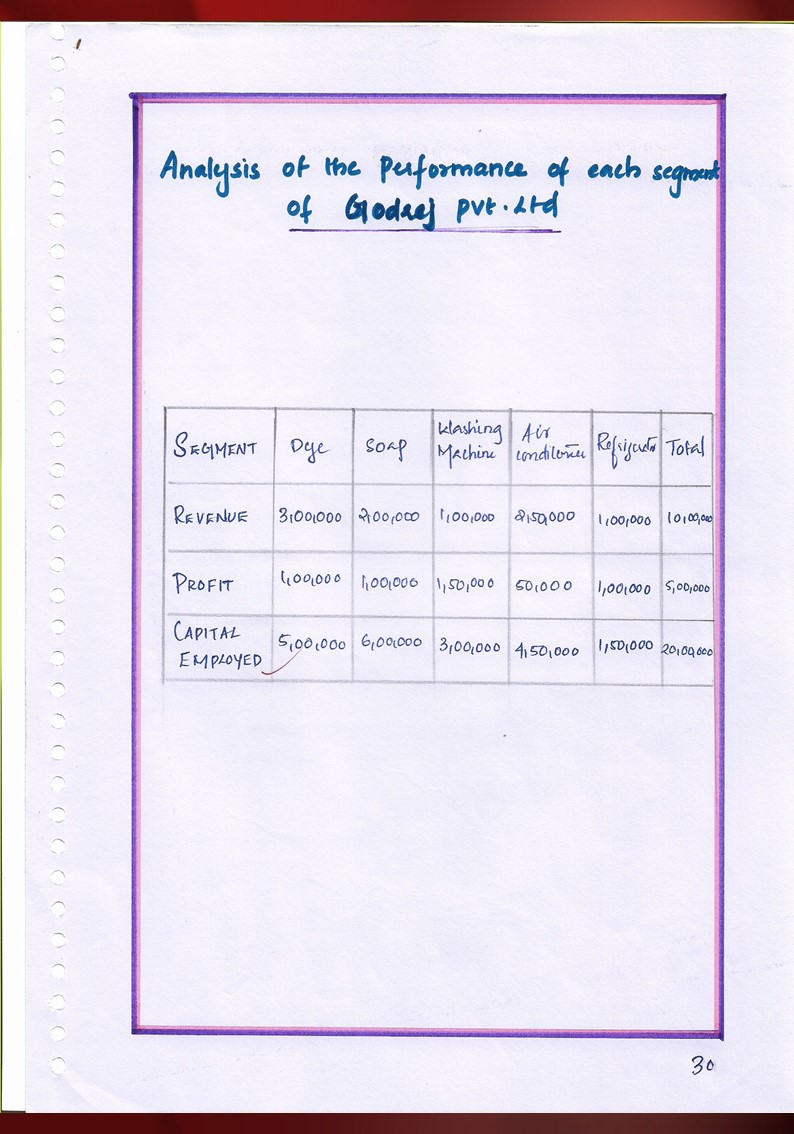 Analysis of the performance of each segment
of Godrej pvt. Ltd
SEGMENT Dye Soap Washing Machine Air conditioner Total
REVENUE 3,00,000 2,00,000 1,00,000 2,50,000 1,00,000 10,00,000
PROFIT 1,00,000 1,00,000 1,50,000 50,000 1,00,000 5,00,000
CAPITAL EMPLOYED 5,00,000 6,00,000 3,00,000 4,50,000 1,50,000 20,00,000
30